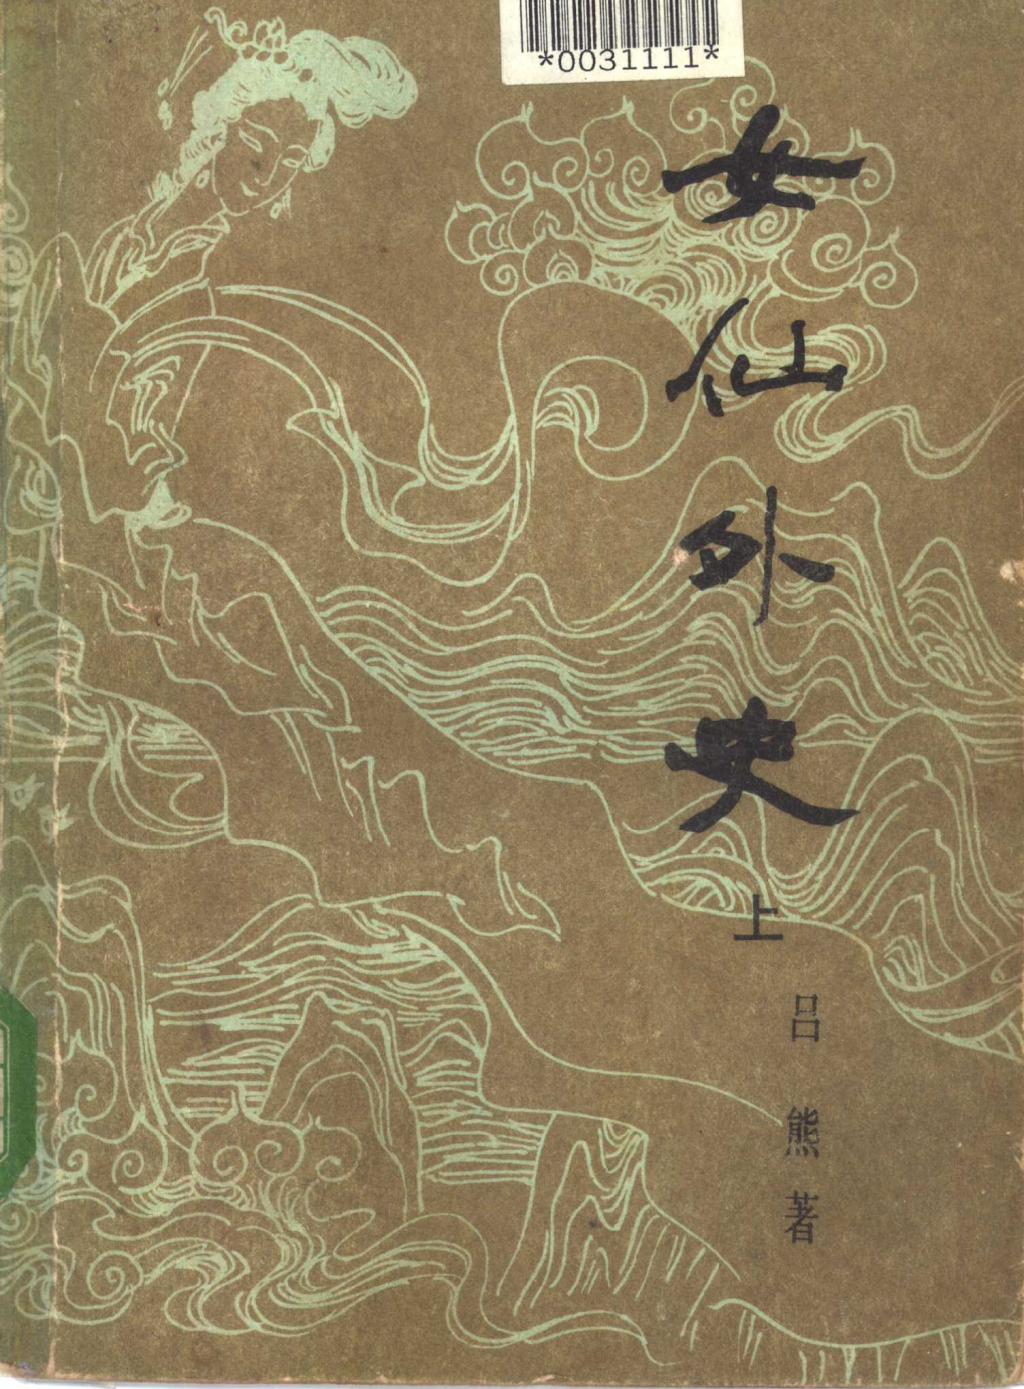 *0031111*
女仙外史
上
吕熊著